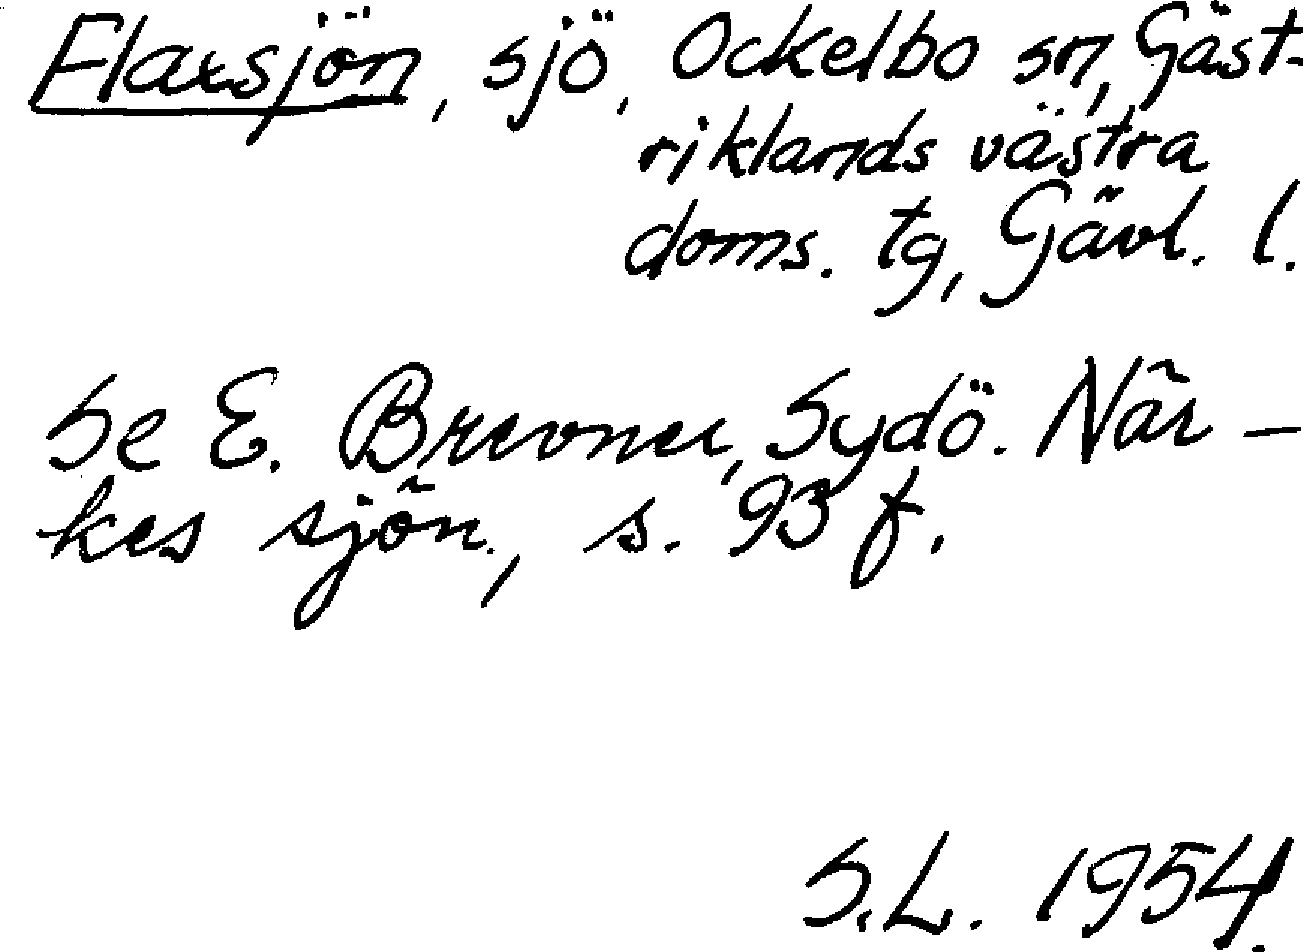 Flaxsjön, sjö, Ockelbo sn, Gäst-
riklands västra
doms. tg, Gävl. l.
Se E. Brevner, Sydö. När-
kes sjön., s. 93 f.
S.L. 1954.